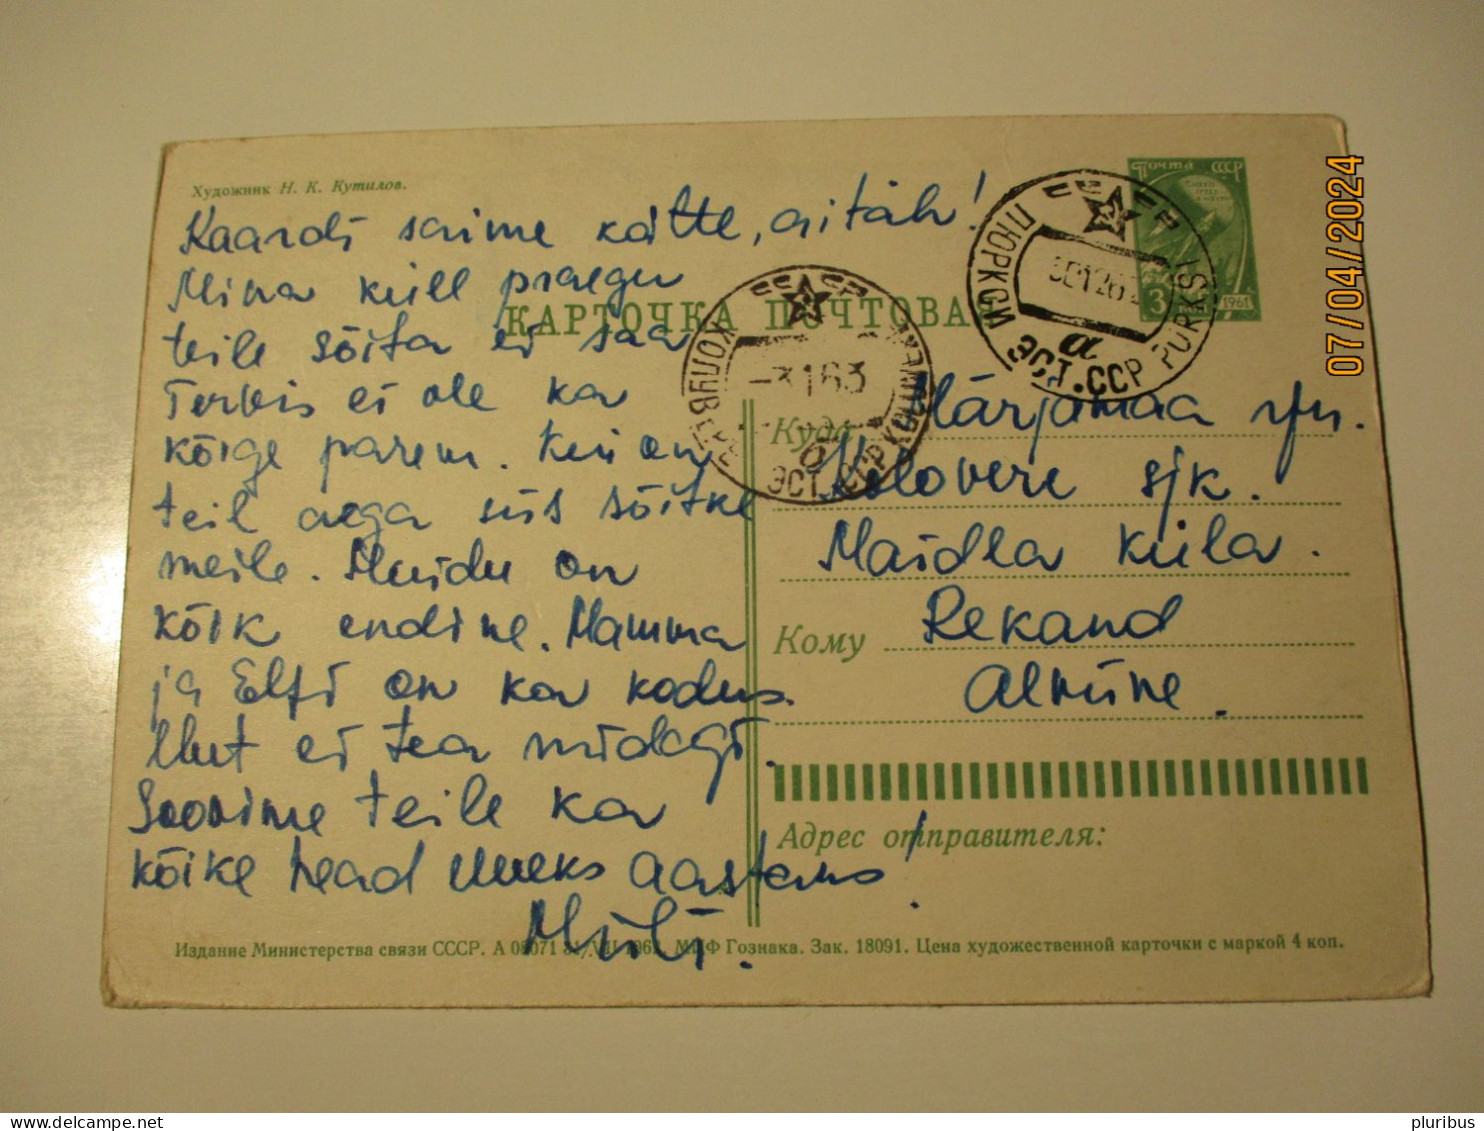 Художник Н. К. Кутилов.
Почта СССР
3
1961
Kaardi saime kätte, aitäh!
Mina küll praegu
teile sõita ei saa
Tervis ei ole ka
kõige parem. Kui on
teil aega siis sõitke
meile. Muidu on
kõik endine. Mamma
ja Elfi on ka kodus.
Muud ei tea midagi.
Soovime teile ka
kõike head Uueks Aastaks!
Miili.
КАРТОЧКА ПОЧТОВАЯ
СССР
ПЮРКСИ ЭСТ.ССР PURKSI
a
СССР
-3163
ЭСТ.ССР
a
Куда Märjamaa rjn.
Kolovere sjk.
Maidla küla.
Кому Rekand
Almiine.
Адрес отправителя:
Издание Министерства связи СССР. А 08071 31/VII 1962. МПФ Гознака. Зак. 18091. Цена художественной карточки с маркой 4 коп.
07/04/2024
pluribus